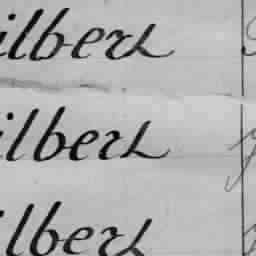 ilbert
ilbert
ilbert